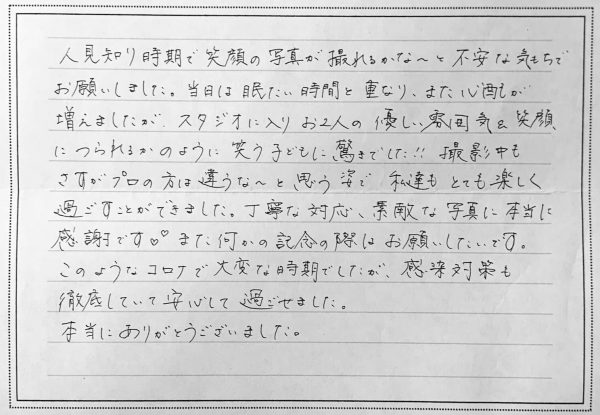 人見知り時期で笑顔の写真が撮れるかな〜と不安な気もちで
お願いしました。当日は眠たい時間と重なり、また心配が
増えましたが、スタジオに入りお2人の優しい雰囲気&笑顔
につられるかのように笑う子どもに驚きでした!! 撮影中も
さすがプロの方は違うな〜と思う姿で 私達もとても楽しく
過ごすことができました。丁寧な対応、素敵な写真に本当に
感謝です♡♡ また何かの記念の際はお願いしたいです。
このようなコロナで大変な時期でしたが、感染対策も
徹底していて安心して過ごせました。
本当にありがとうございました。